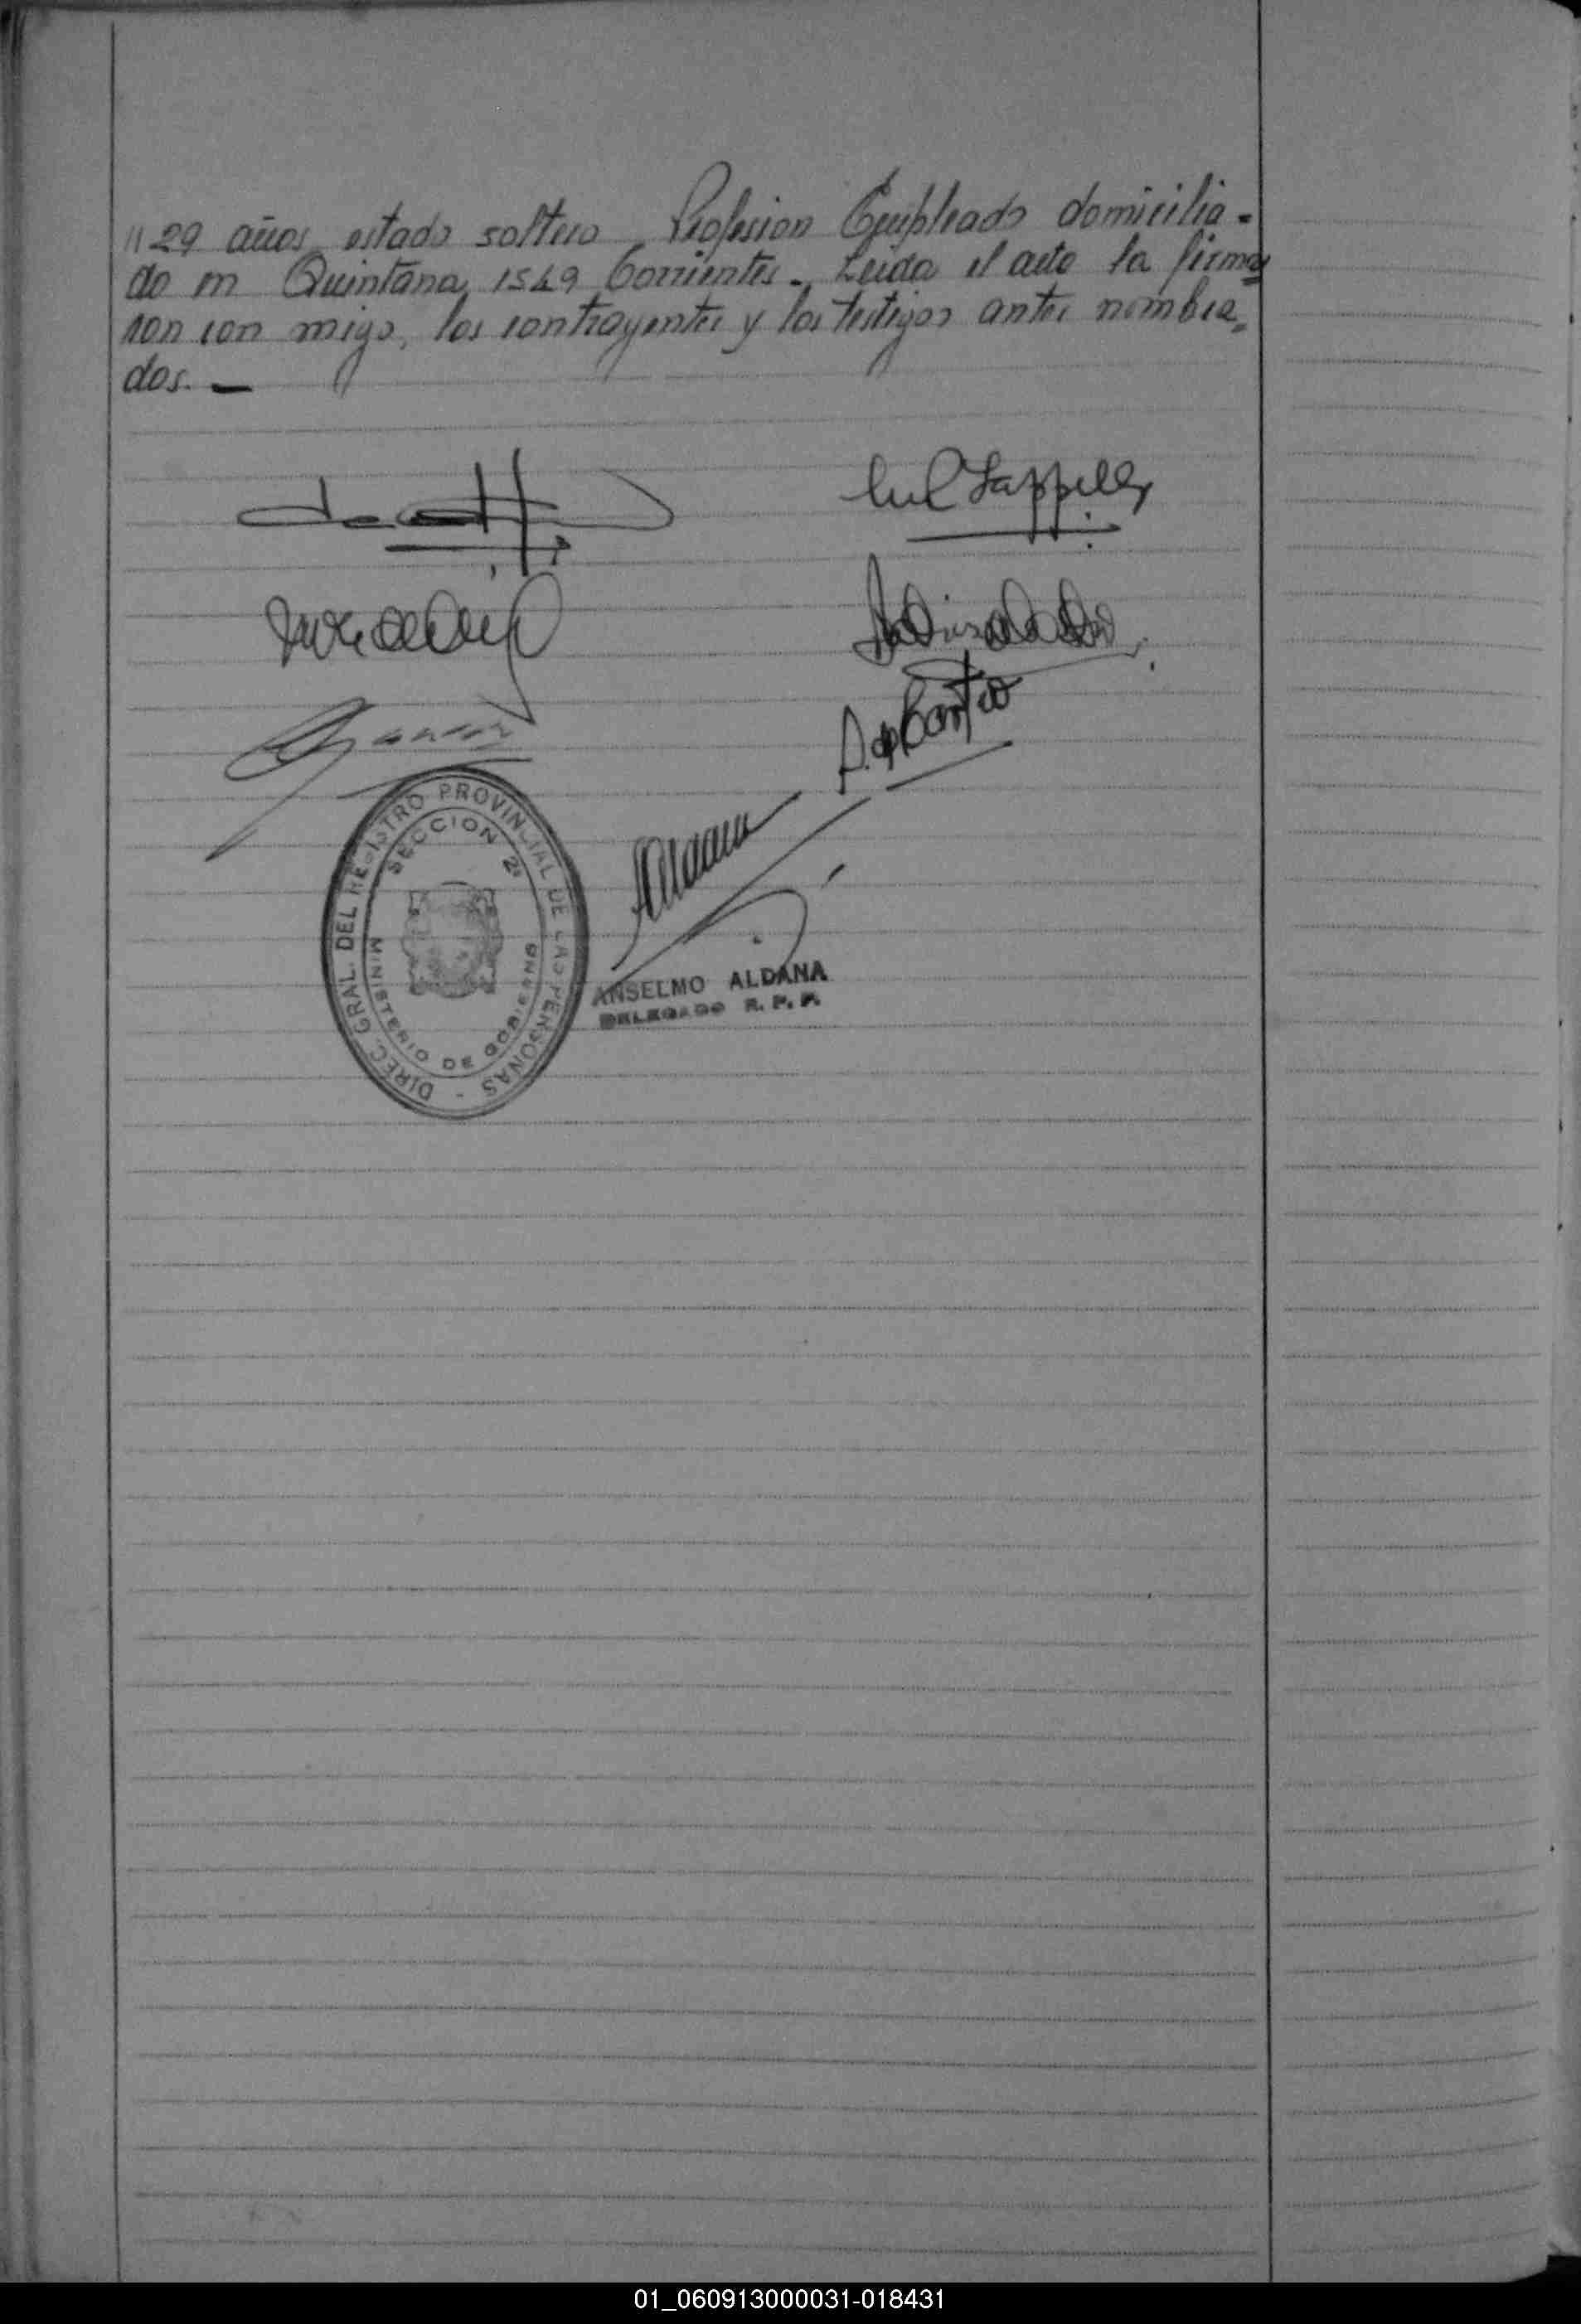 "29 años, estado soltero, Profesion Empleado domicilia=
do en Quintana, 1549 Corrientes. Leida el acto la firma=
ron con migo, los contrayentes y los testigos antes nombra=
dos. —
DIREC. GRAL. DEL REGISTRO PROVINCIAL DE LAS PERSONAS -
SECCION 2ª
MINISTERIO DE GOBIERNO
ANSELMO ALDANA
DELEGADO R. P. P.
01_060913000031-018431